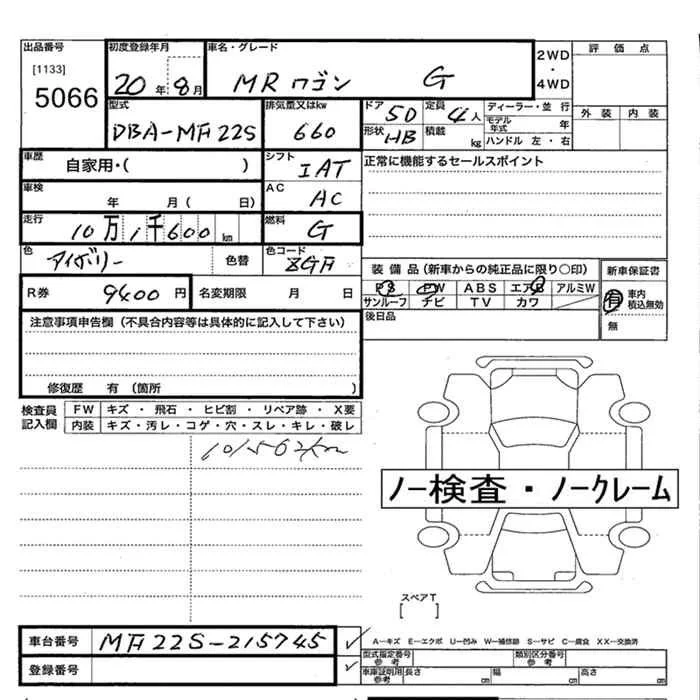 出品番号 初度登録年月 車名・グレード 評価点
[1133] 2WD
5066 20年8月 MRワゴン G ・
4WD
型式 排気量又はkw ドア 5D 定員 4人 ディーラー・並行 外装 内装
DBA-MF22S 660 形状 HB 積載 kg モデル年式 年
ハンドル 左・右
車歴 自家用・( ) シフト IAT 正常に機能するセールスポイント
車検 年 月( 日) AC AC
走行 10万1千600km 燃料 G
色 アイボリー 色替 色コード ZGA 装備品(新車からの純正品に限り○印) 新車保証書
R券 9400円 名変期限 月 日 PS PW ABS エアB アルミW 有 車内積込無効
サンルーフ ナビ TV カワ
注意事項申告欄(不具合内容等は具体的に記入して下さい) 後日品 無
修復歴 有(箇所 )
検査員記入欄 FW キズ・飛石・ヒビ割・リペア跡・X要
内装 キズ・汚レ・コゲ・穴・スレ・キレ・破レ
ノー検査・ノークレーム
スペアT
[ ]
車台番号 MF22S-215745 A―キズ E―エクボ U―凹み W―補修跡 S―サビ C―腐食 XX―交換済
型式指定番号 参考 類別区分番号 参考
登録番号 車庫証明用 参考 長さ cm 幅 cm 高さ cm